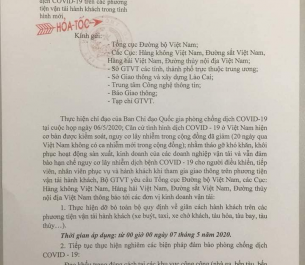 dịch COVID-19 trên các phương
tiện vận tải hành khách trong tình
hình mới.
HỎA-TỐC
Kính gửi:
- Tổng cục Đường bộ Việt Nam;
- Các Cục: Hàng không Việt Nam, Đường sắt Việt Nam,
Hàng hải Việt Nam, Đường thủy nội địa Việt Nam;
- Sở GTVT các tỉnh, thành phố trực thuộc trung ương;
- Sở Giao thông và xây dựng Lào Cai;
- Trung tâm Công nghệ thông tin;
- Báo Giao thông;
- Tạp chí GTVT.
Thực hiện chỉ đạo của Ban Chỉ đạo Quốc gia phòng chống dịch COVID-19
tại cuộc họp ngày 06/5/2020; Căn cứ tình hình dịch COVID - 19 ở Việt Nam hiện
cơ bản được kiểm soát, nguy cơ lây nhiễm trong cộng đồng đã giảm (20 ngày qua
Việt Nam không có ca nhiễm mới trong cộng đồng); nhằm tháo gỡ khó khăn, khôi
phục hoạt động sản xuất, kinh doanh của các doanh nghiệp vận tải và vẫn đảm
bảo hạn chế nguy cơ lây nhiễm dịch bệnh COVID - 19 cho người điều khiển, tiếp
viên, nhân viên phục vụ và hành khách khi tham gia giao thông trên phương tiện
vận tải hành khách, Bộ GTVT yêu cầu Tổng cục Đường bộ Việt Nam, các Cục:
Hàng không Việt Nam, Hàng hải Việt Nam, Đường sắt Việt Nam, Đường thủy
nội địa Việt Nam thông báo tới các đơn vị kinh doanh vận tải:
1. Thực hiện dỡ bỏ toàn bộ quy định về giãn cách hành khách trên các
phương tiện vận tải hành khách (xe buýt, taxi, xe chở khách, tàu hỏa, tàu bay, tàu
thủy…).
Thời gian áp dụng: từ 00 giờ 00 ngày 07 tháng 5 năm 2020.
2. Tiếp tục thực hiện nghiêm các biện pháp đảm bảo phòng chống dịch
COVID-19: